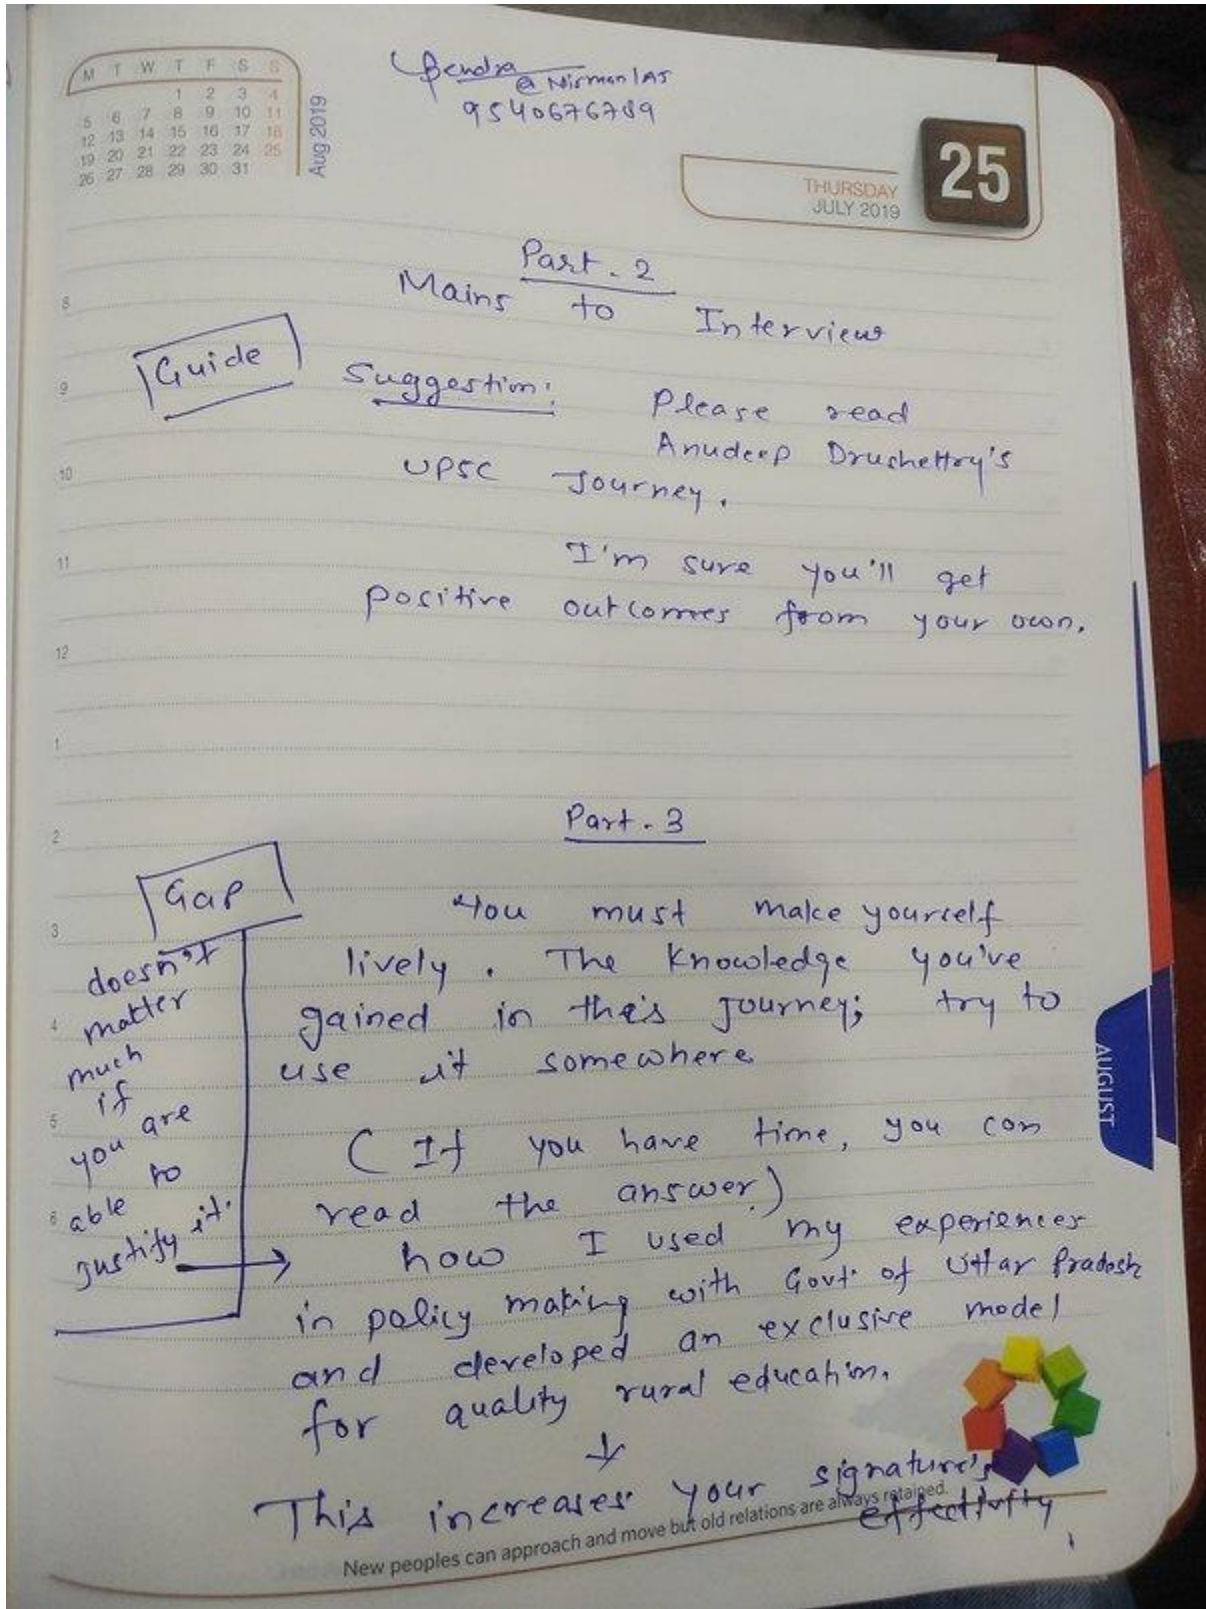 M T W T F S S
1 2 3 4
5 6 7 8 9 10 11
12 13 14 15 16 17 18
19 20 21 22 23 24 25
26 27 28 29 30 31
Aug 2019
@ NirmanIAS
9540676789
25
THURSDAY
JULY 2019
Part - 2
Mains to Interview
Guide
Suggestion: Please read
Anudeep Drushettry's
UPSC Journey.
I'm sure you'll get
positive outcomes from your own.
Part - 3
Gap
doesn't
matter
much
if
you are
able to
justify it.
You must make yourself
lively. The Knowledge you've
gained in this journey; try to
use it somewhere
(If you have time, you can
read the answer.)
how I used my experiences
in policy making with Govt. of Uttar Pradesh
and developed an exclusive model
for quality rural education.
This increases your signature's
effectivity
8
9
10
11
12
1
2
3
4
5
6
AUGUST
New peoples can approach and move but old relations are always retained.